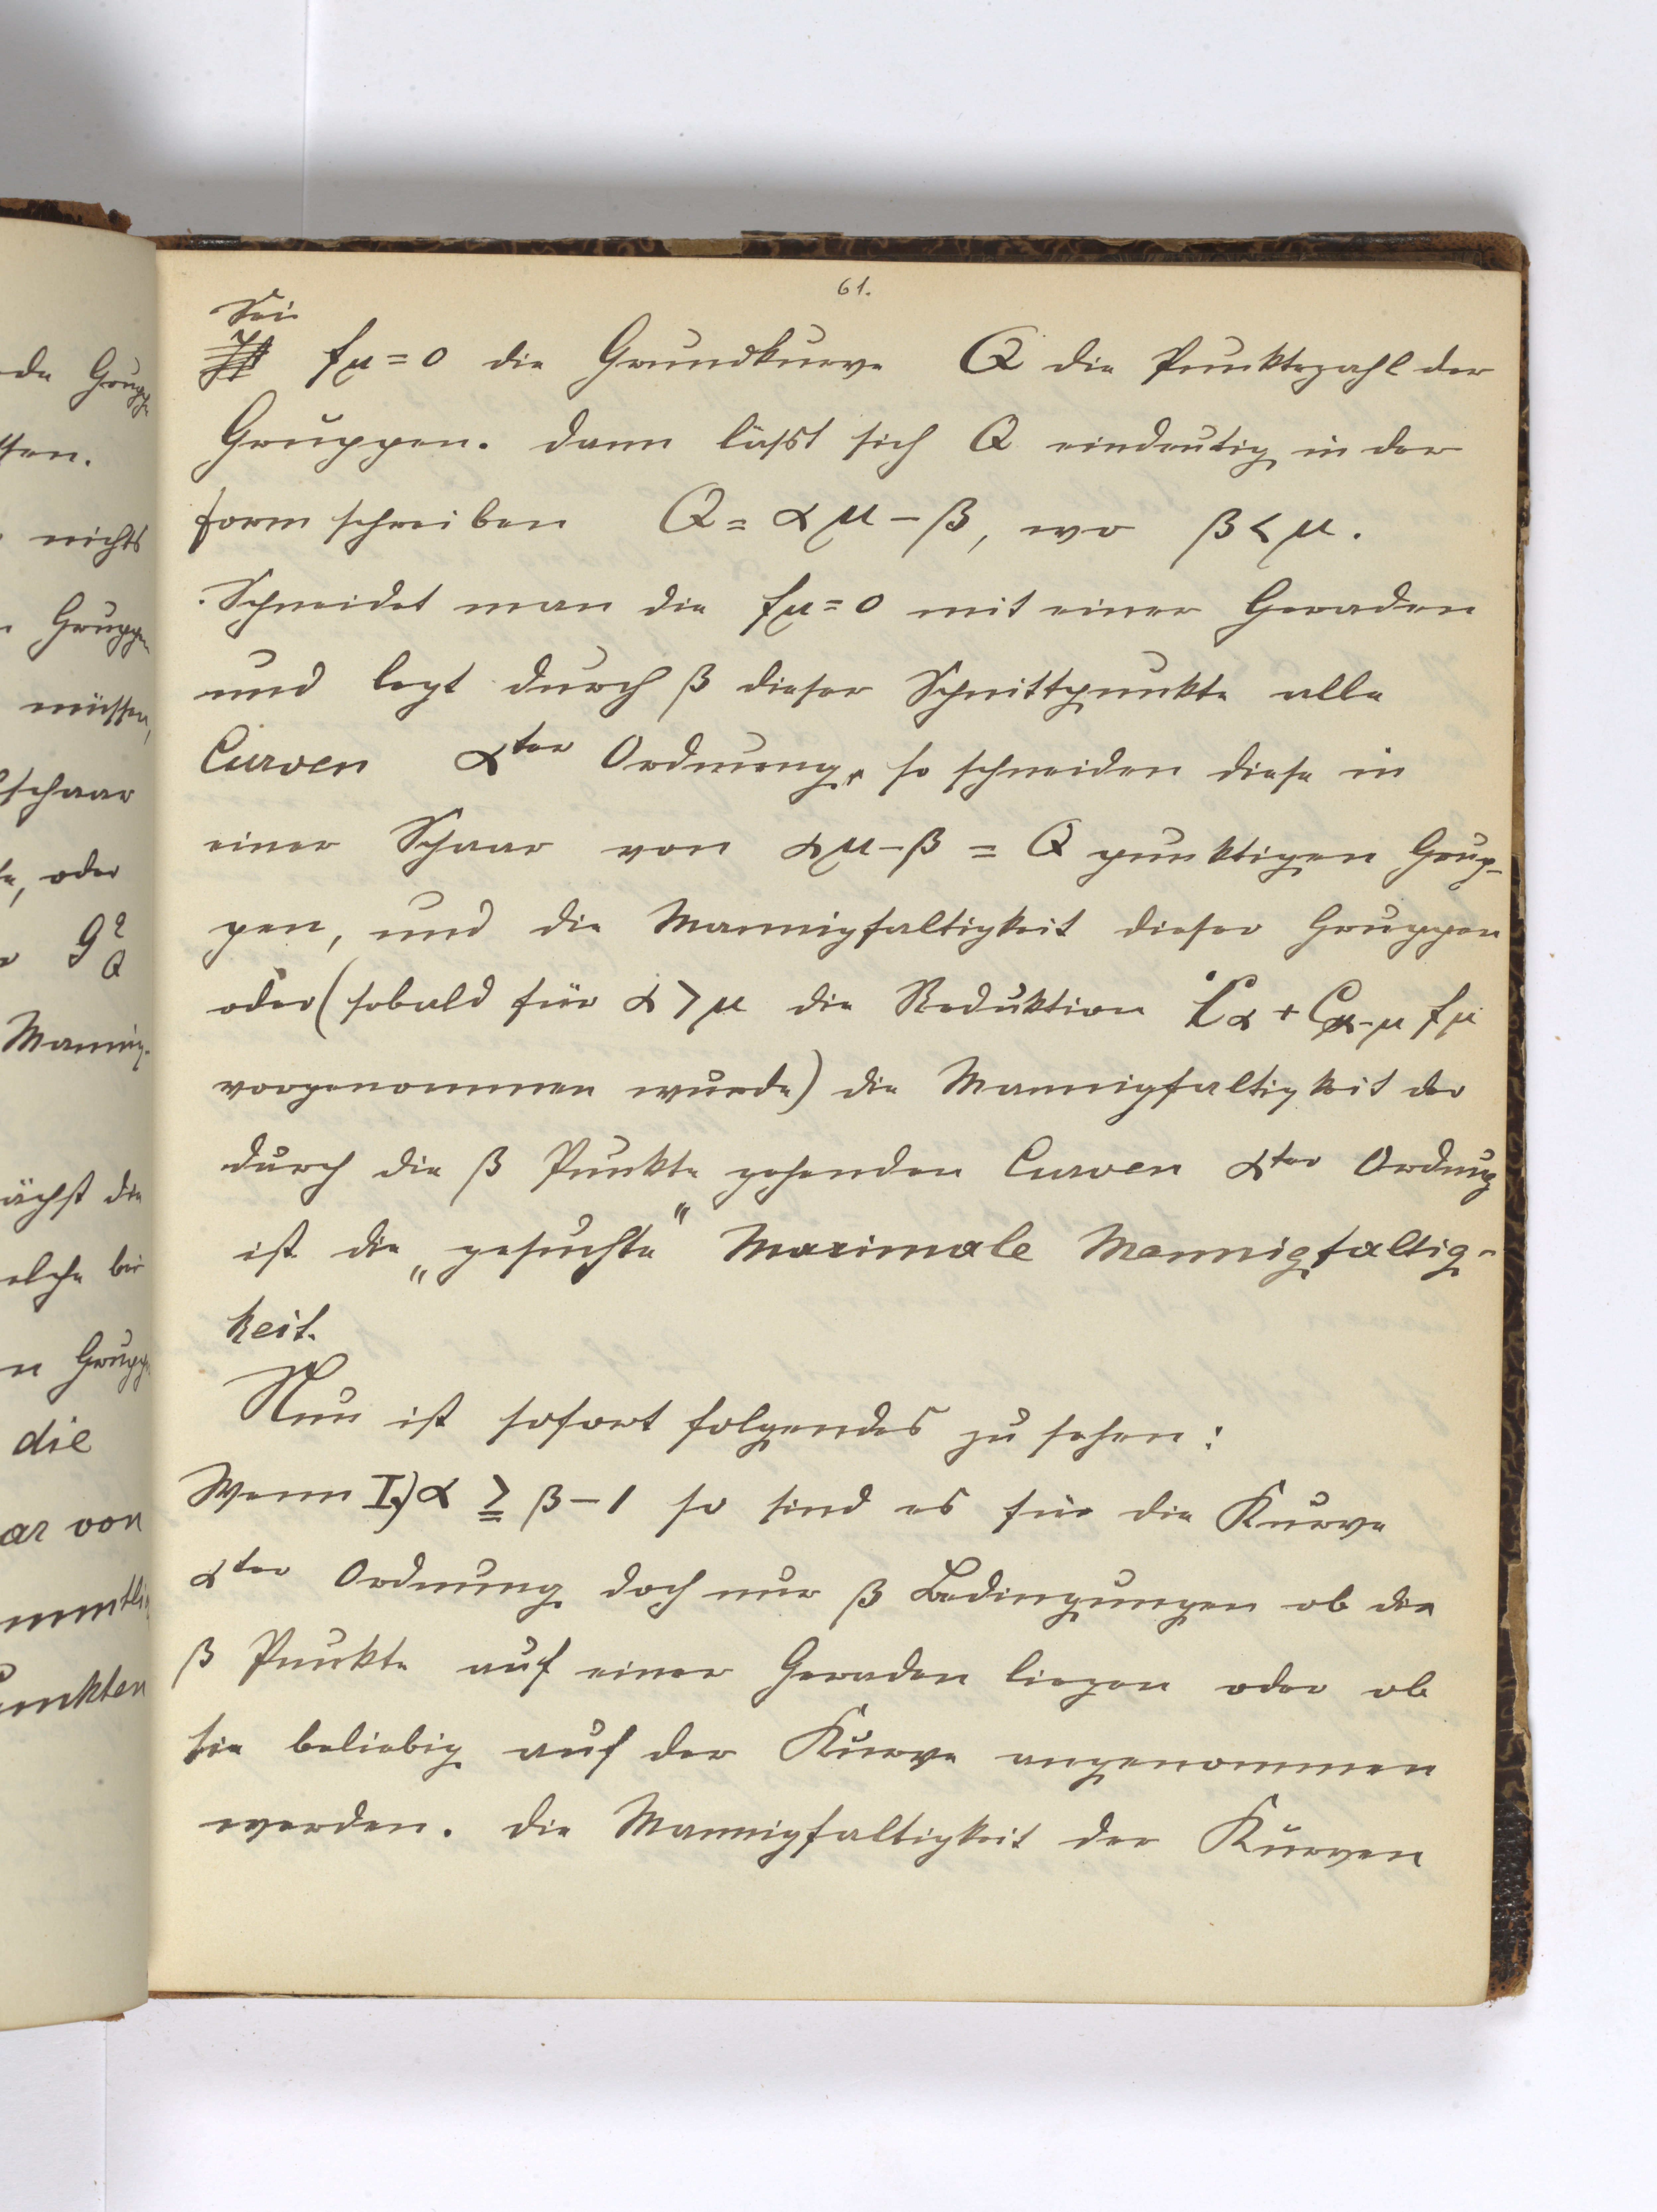 61.
Sei
Ist fμ=0 die Grundkurve Q die Punktezahl der
Gruppen. dann läßt sich Q eindeutig in der
form schreiben Q = αμ-β, wo β<μ.
Schneidet man die fμ=0 mit einer Geraden
und legt durch β dieser Schnittpunkte alle
Curven αter Ordnung, so schneiden diese in
einer Schaar von αμ-β = Q punktigen Grup-
pen, und die Mannigfaltigkeit dieser Gruppen
oder (sobald für α>μ die Reduktion Cα + Cα-μ fμ
vorgenommen wurde) die Mannigfaltigkeit der
durch die β Punkte gehenden Curven αter Ordnung
ist die „gesuchte" Maximale Mannigfaltig-
keit.
Nun ist sofort folgendes zu sehen:
Wenn I.) α ≧ β-1 so sind es für die Kurve
αter Ordnung doch nur β Bedingungen ob die
β Punkte auf einer Geraden liegen oder ob
sie beliebig auf der Kurve angenommen
werden. die Mannigfaltigkeit der Kurven
de Gruppe
nichts
Gruppen
müssen,
schaar
oder
gqQ
Mannig-
ächst die
elche bei
n Gruppe
die
ar von
unkten